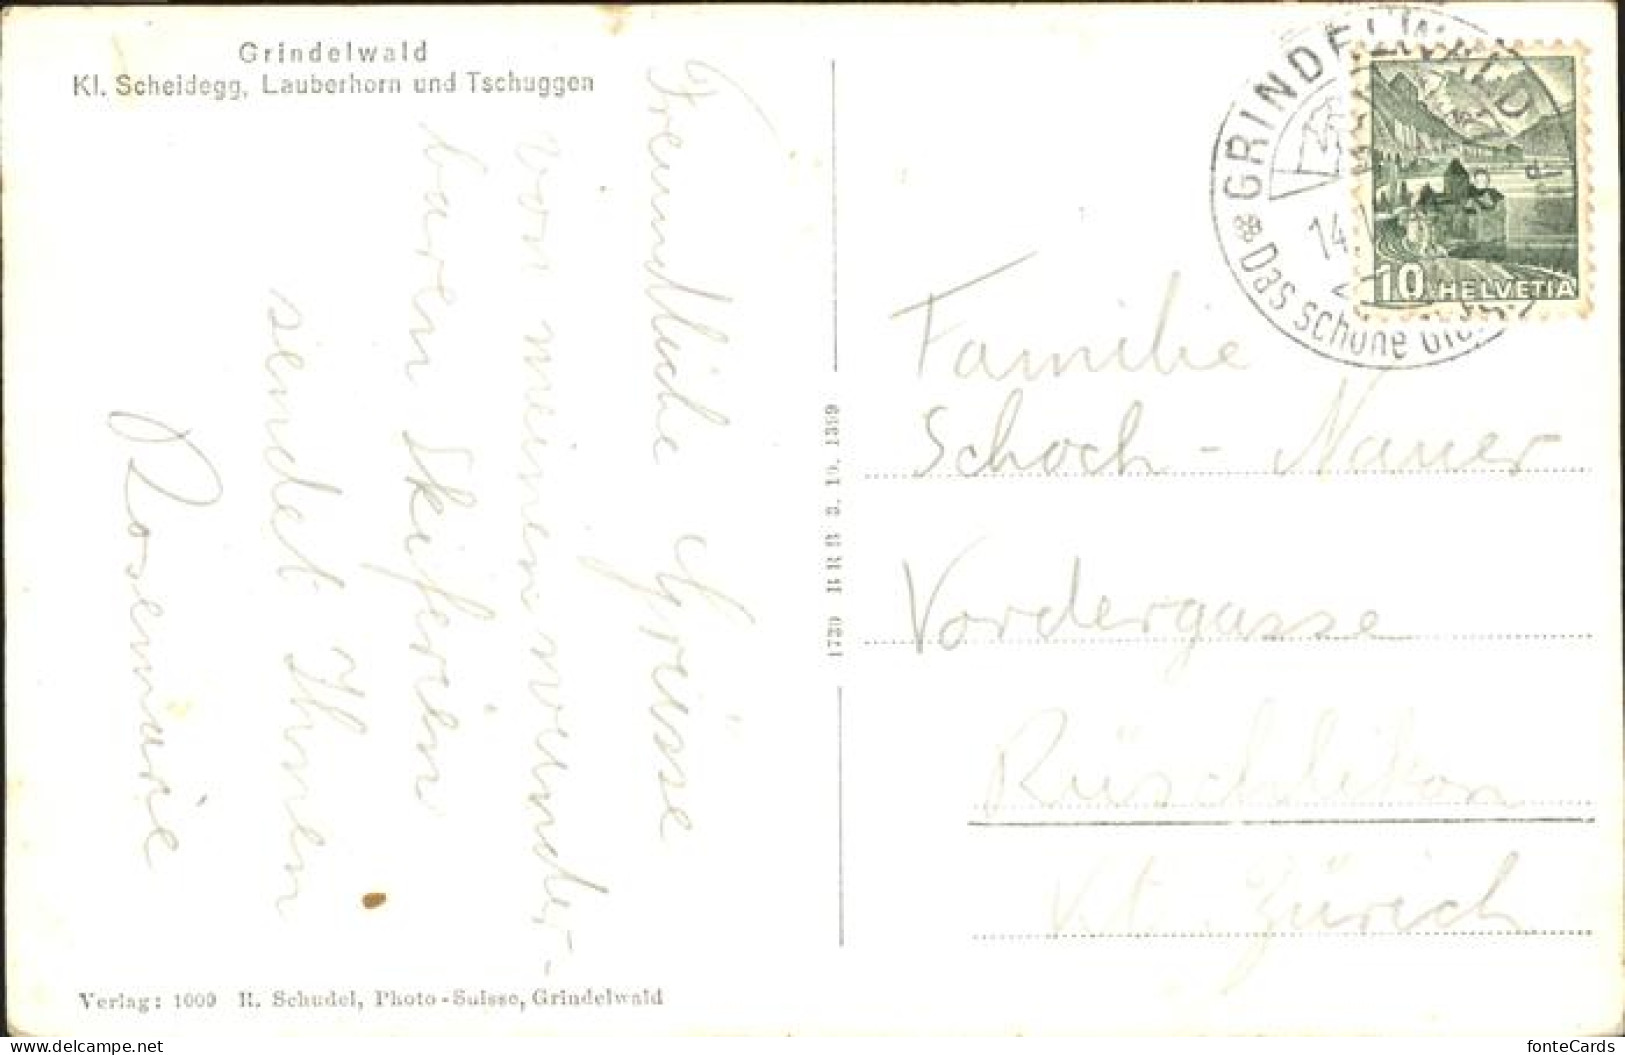 Grindelwald
Kl. Scheidegg, Lauberhorn und Tschuggen
Freundliche Grüsse
von meinen wunder-
baren Skiferien
sendet Ihnen
Rosemarie
Verlag: 1009 R. Schudel, Photo-Suisse, Grindelwald
1730 BRB 3. 10. 1399
GRINDELWALD
14.
Das schöne
10 HELVETIA
Familie
Schoch - Nauer
Vordergasse
Rüschlikon
Kt. Zürich
fonteCards